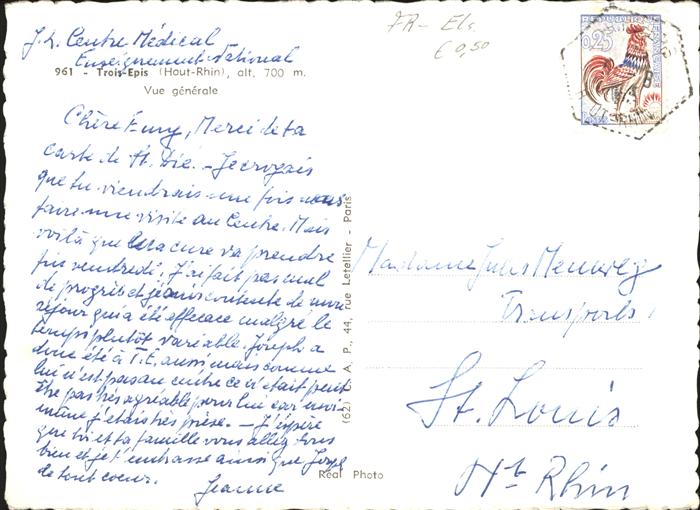 FR - Els
€ 0,50
0,25
J. L. Centre Médical
Enseignement National
961 - Trois-Epis (Haut-Rhin), alt. 700 m.
Vue générale
Chère Emy, Merci de ta
carte de St. Dié. - Je croyais
que tu viendrais une fois nous
faire une visite au Centre. Mais
voilà que la cure va prendre
fin vendredi. J'ai fait pas mal
de progrès et je suis contente de mon
séjour qui a été efficace malgré le
temps plutôt variable. Joseph a
donc été à T.E. aussi mais comme
lui n'est pas au centre ce n'était peut
être pas très agréable pour lui car moi-
même j'étais très prise. - J'espère
que toi et ta famille vous allez tous
bien et je t'embrasse ainsi que
de tout coeur.
Jeanne
(62) C. A. P., 44, rue Letellier - Paris
Réal Photo
Madame Jules
Transports
St. Louis
Ht Rhin